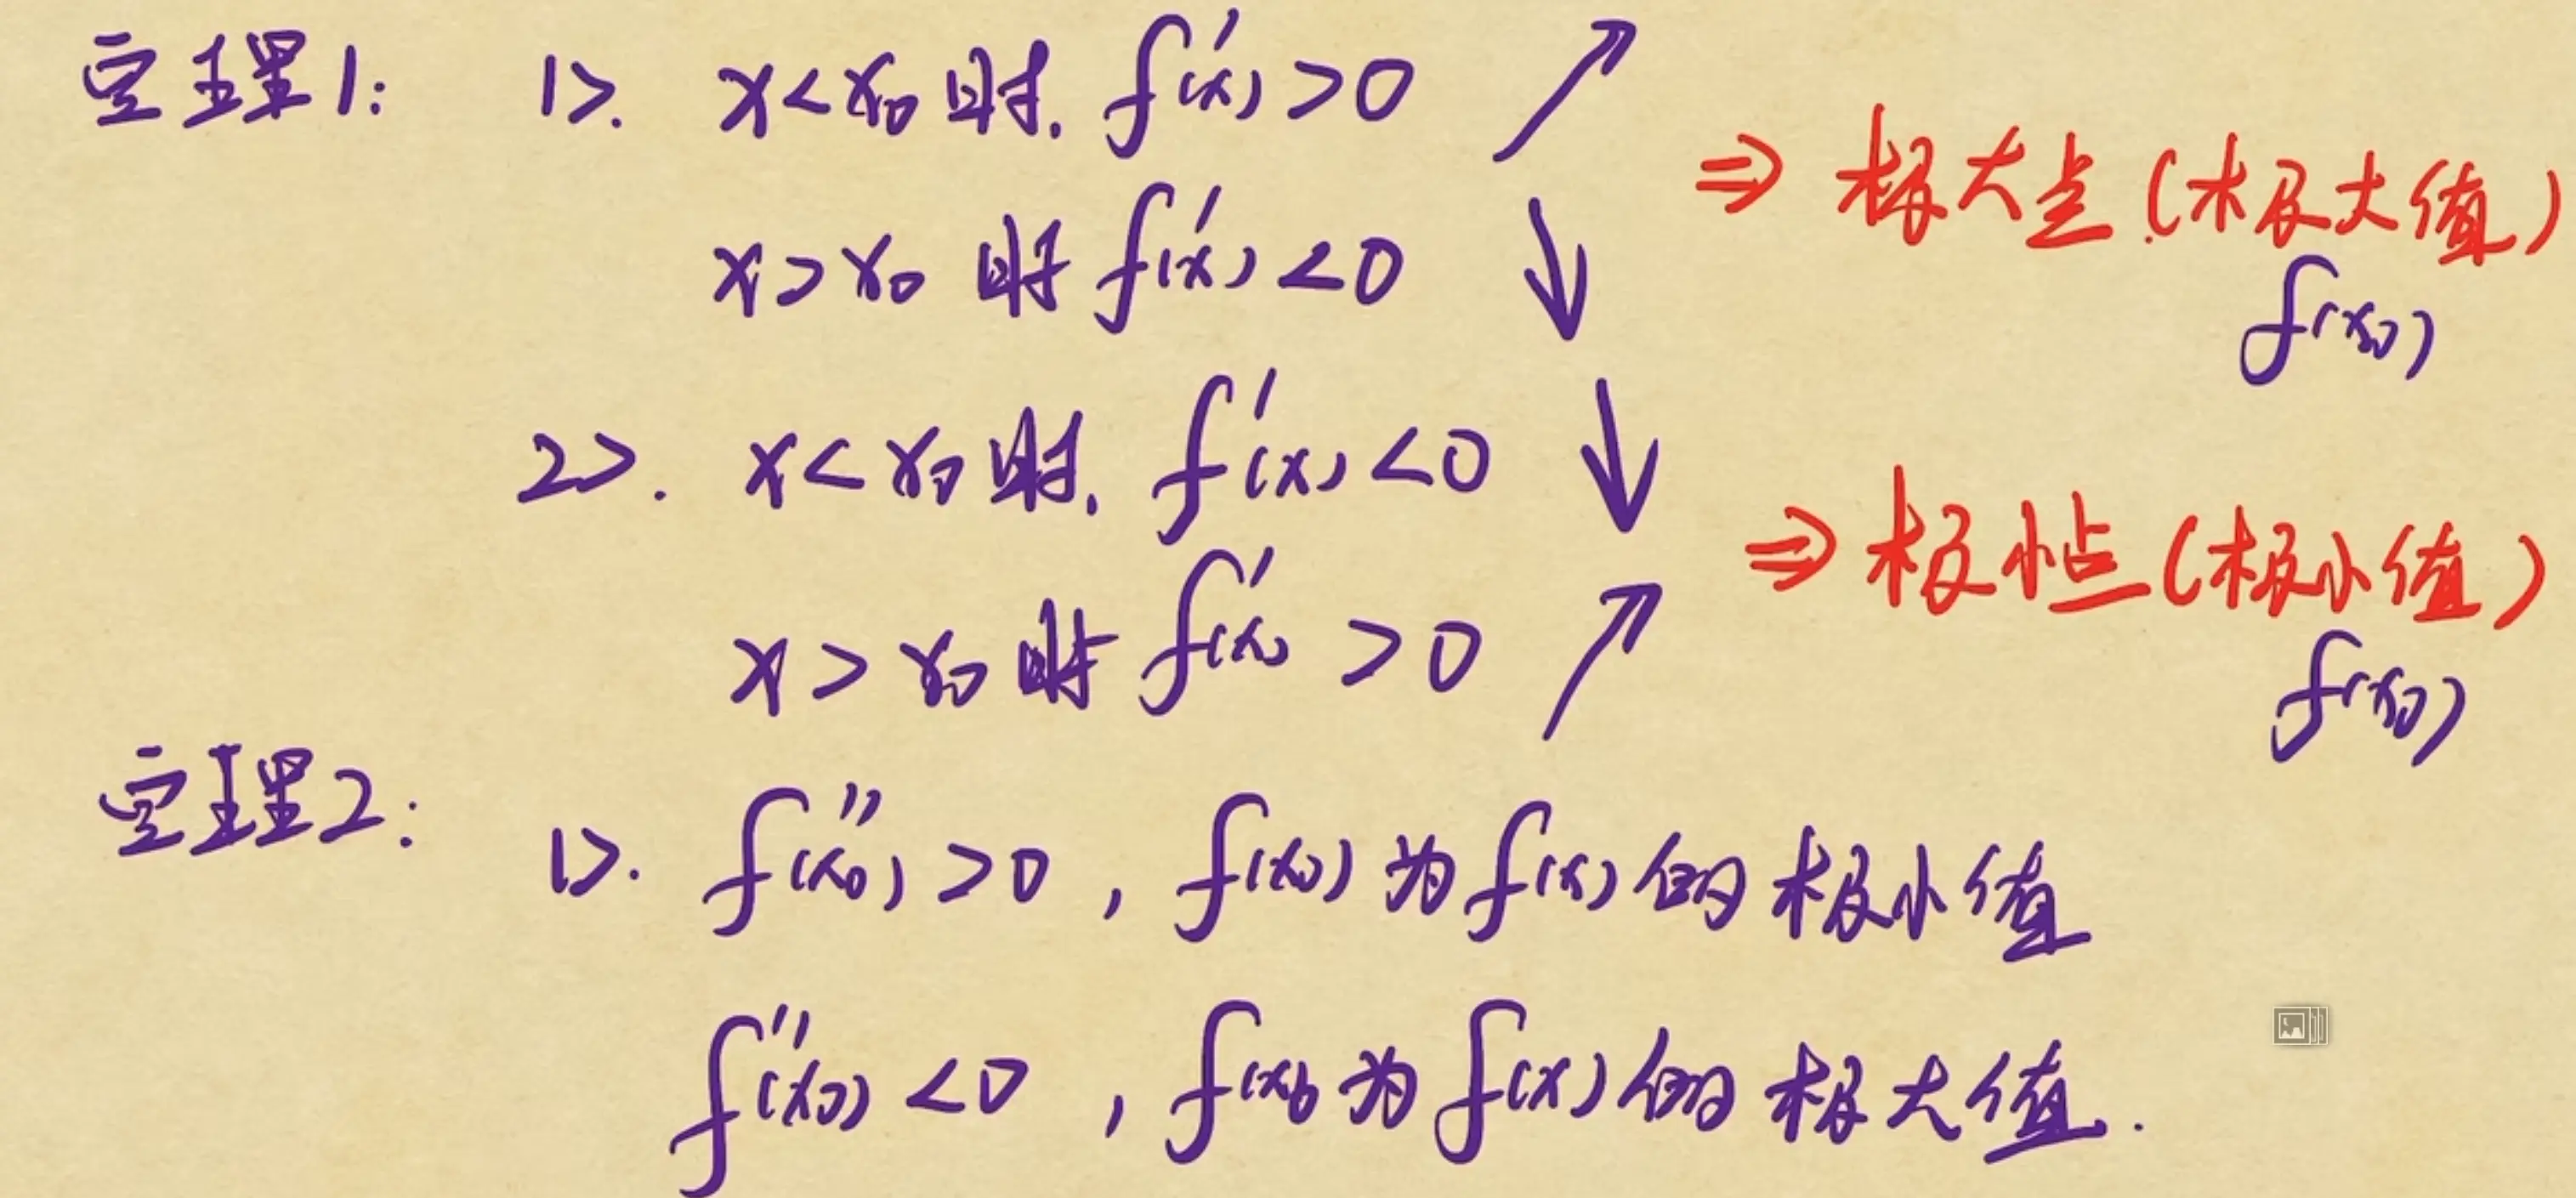 定理1: 1>. x<x₀时. f'(x)>0 ↗
⇒ 极大点(极大值)
x>x₀时 f'(x)<0 ↓
f(x₀)
2>. x<x₀时. f'(x)<0 ↓
⇒ 极小点(极小值)
x>x₀时 f'(x)>0 ↗
f(x₀)
定理2: 1>. f''(x₀)>0, f(x₀)为f(x)的极小值
f''(x₀)<0, f(x₀)为f(x)的极大值.